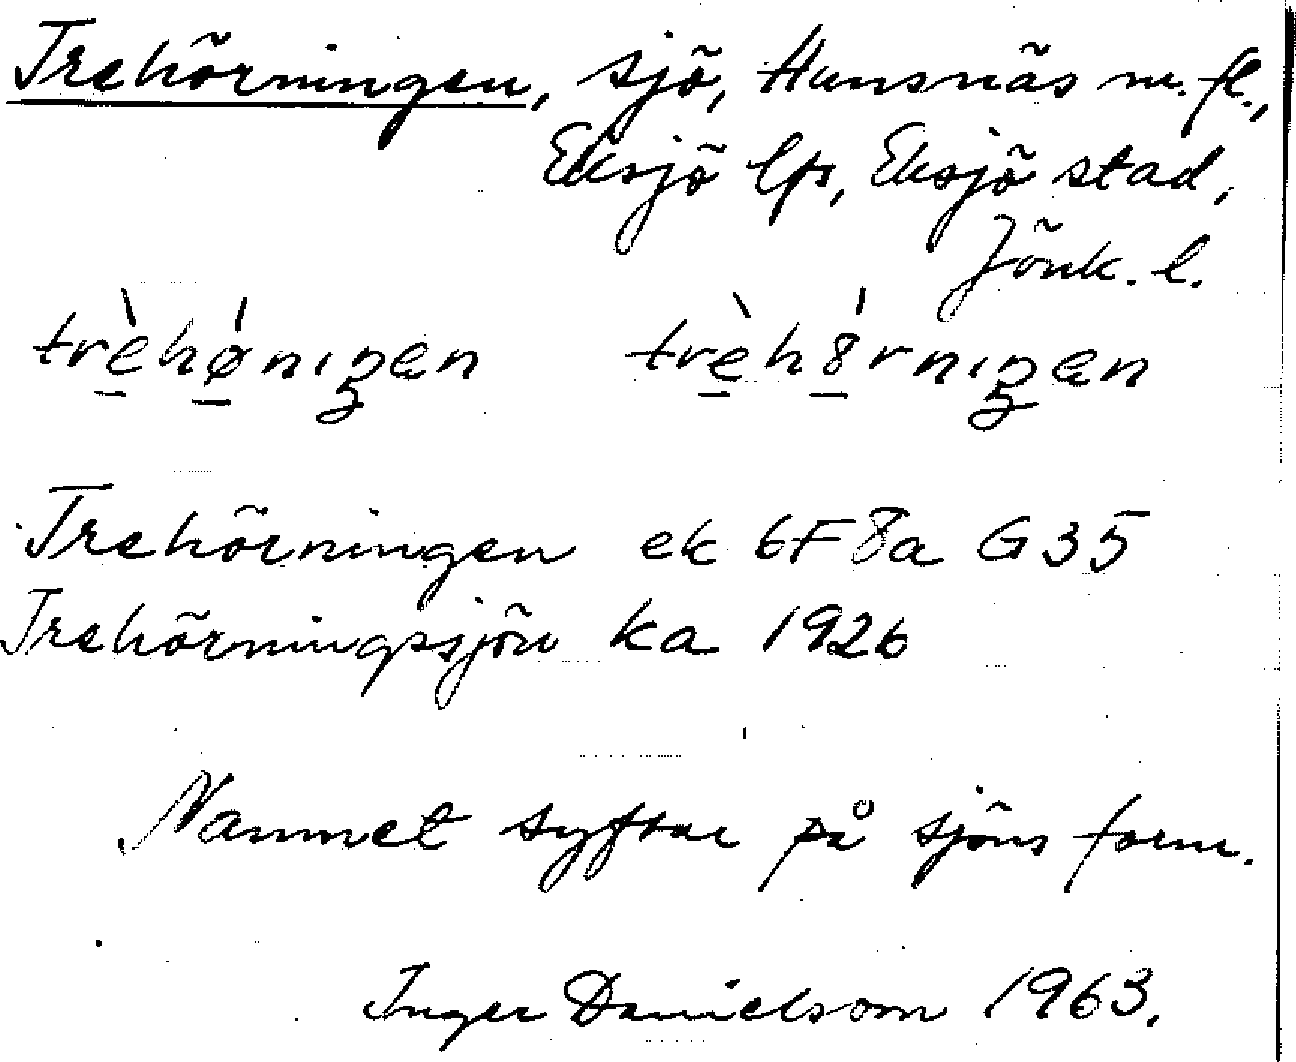 Trehörningen, sjö, Hunsnäs m. fl.,
Eksjö lfs, Eksjö stad,
Jönk. l.
trèhǿnıŋen trèhórnıŋen
Trehörningen ek 6F8a G35
Trehörningssjön ka 1926
Namnet syftar på sjöns form.
Inger Danielsson 1963.